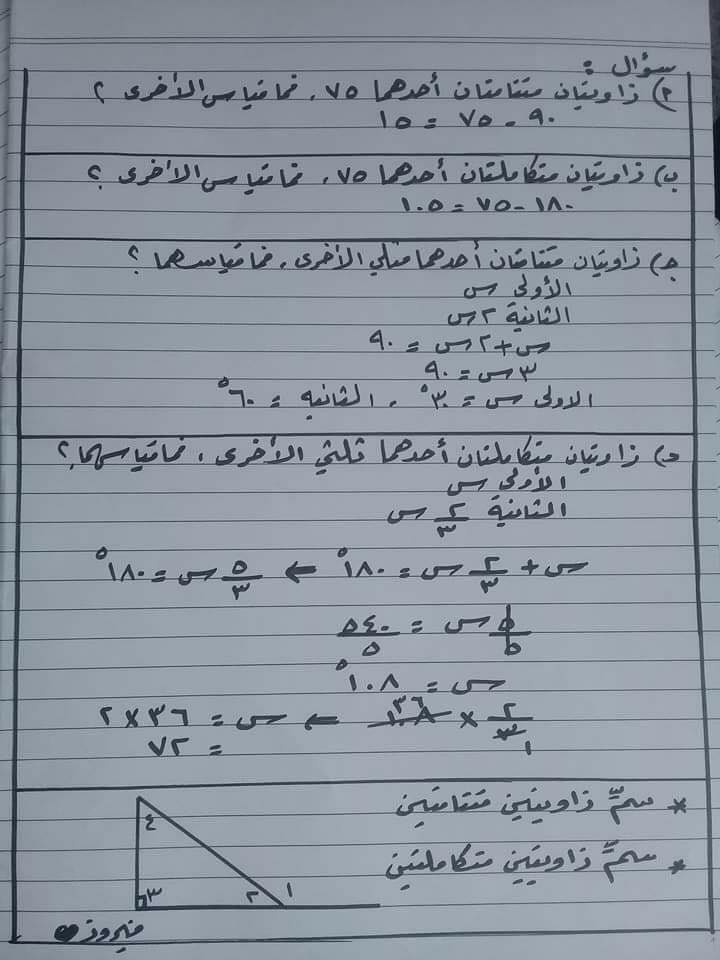 سؤال :
أ) زاويتان متتامتان أحدهما ٧٥ ، فما قياس الأخرى ؟
٩٠ - ٧٥ = ١٥
ب) زاويتان متكاملتان أحدهما ٧٥ ، فما قياس الأخرى ؟
١٨٠ - ٧٥ = ١٠٥
ج) زاويتان متتامتان أحدهما مثلي الأخرى ، فما قياسهما ؟
الأولى س
الثانية ٢س
س + ٢س = ٩٠
٣س = ٩٠
الاولى س = ٣٠° ، الثانيه = ٦٠°
د) زاويتان متكاملتان أحدهما ثلثي الأخرى ، فما قياسهما ؟
الأولى س
الثانية ٢/٣ س
س + ٢/٣ س = ١٨٠° ← ٥/٣ س = ١٨٠°
٥/٥ س = ٥٤٠/٥
س = ١٠٨°
٢/٣ × ١٠٨ ٣٦ ١ ← س = ٣٦ × ٢
= ٧٢
* سمِّ زاويتين متتامتين
* سمِّ زاويتين متكاملتين
٤
٣ ٢ ١
فيروز